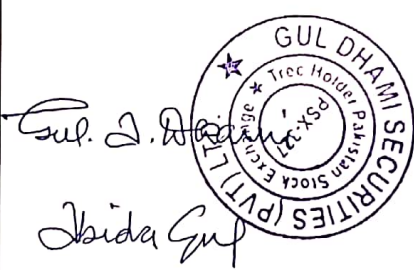 GUL DHAMI SECURITIES (PVT) LTD
Trec Holder Pakistan Stock Exchange
PSX-127
Gul. I. Dhami
Abida Gul